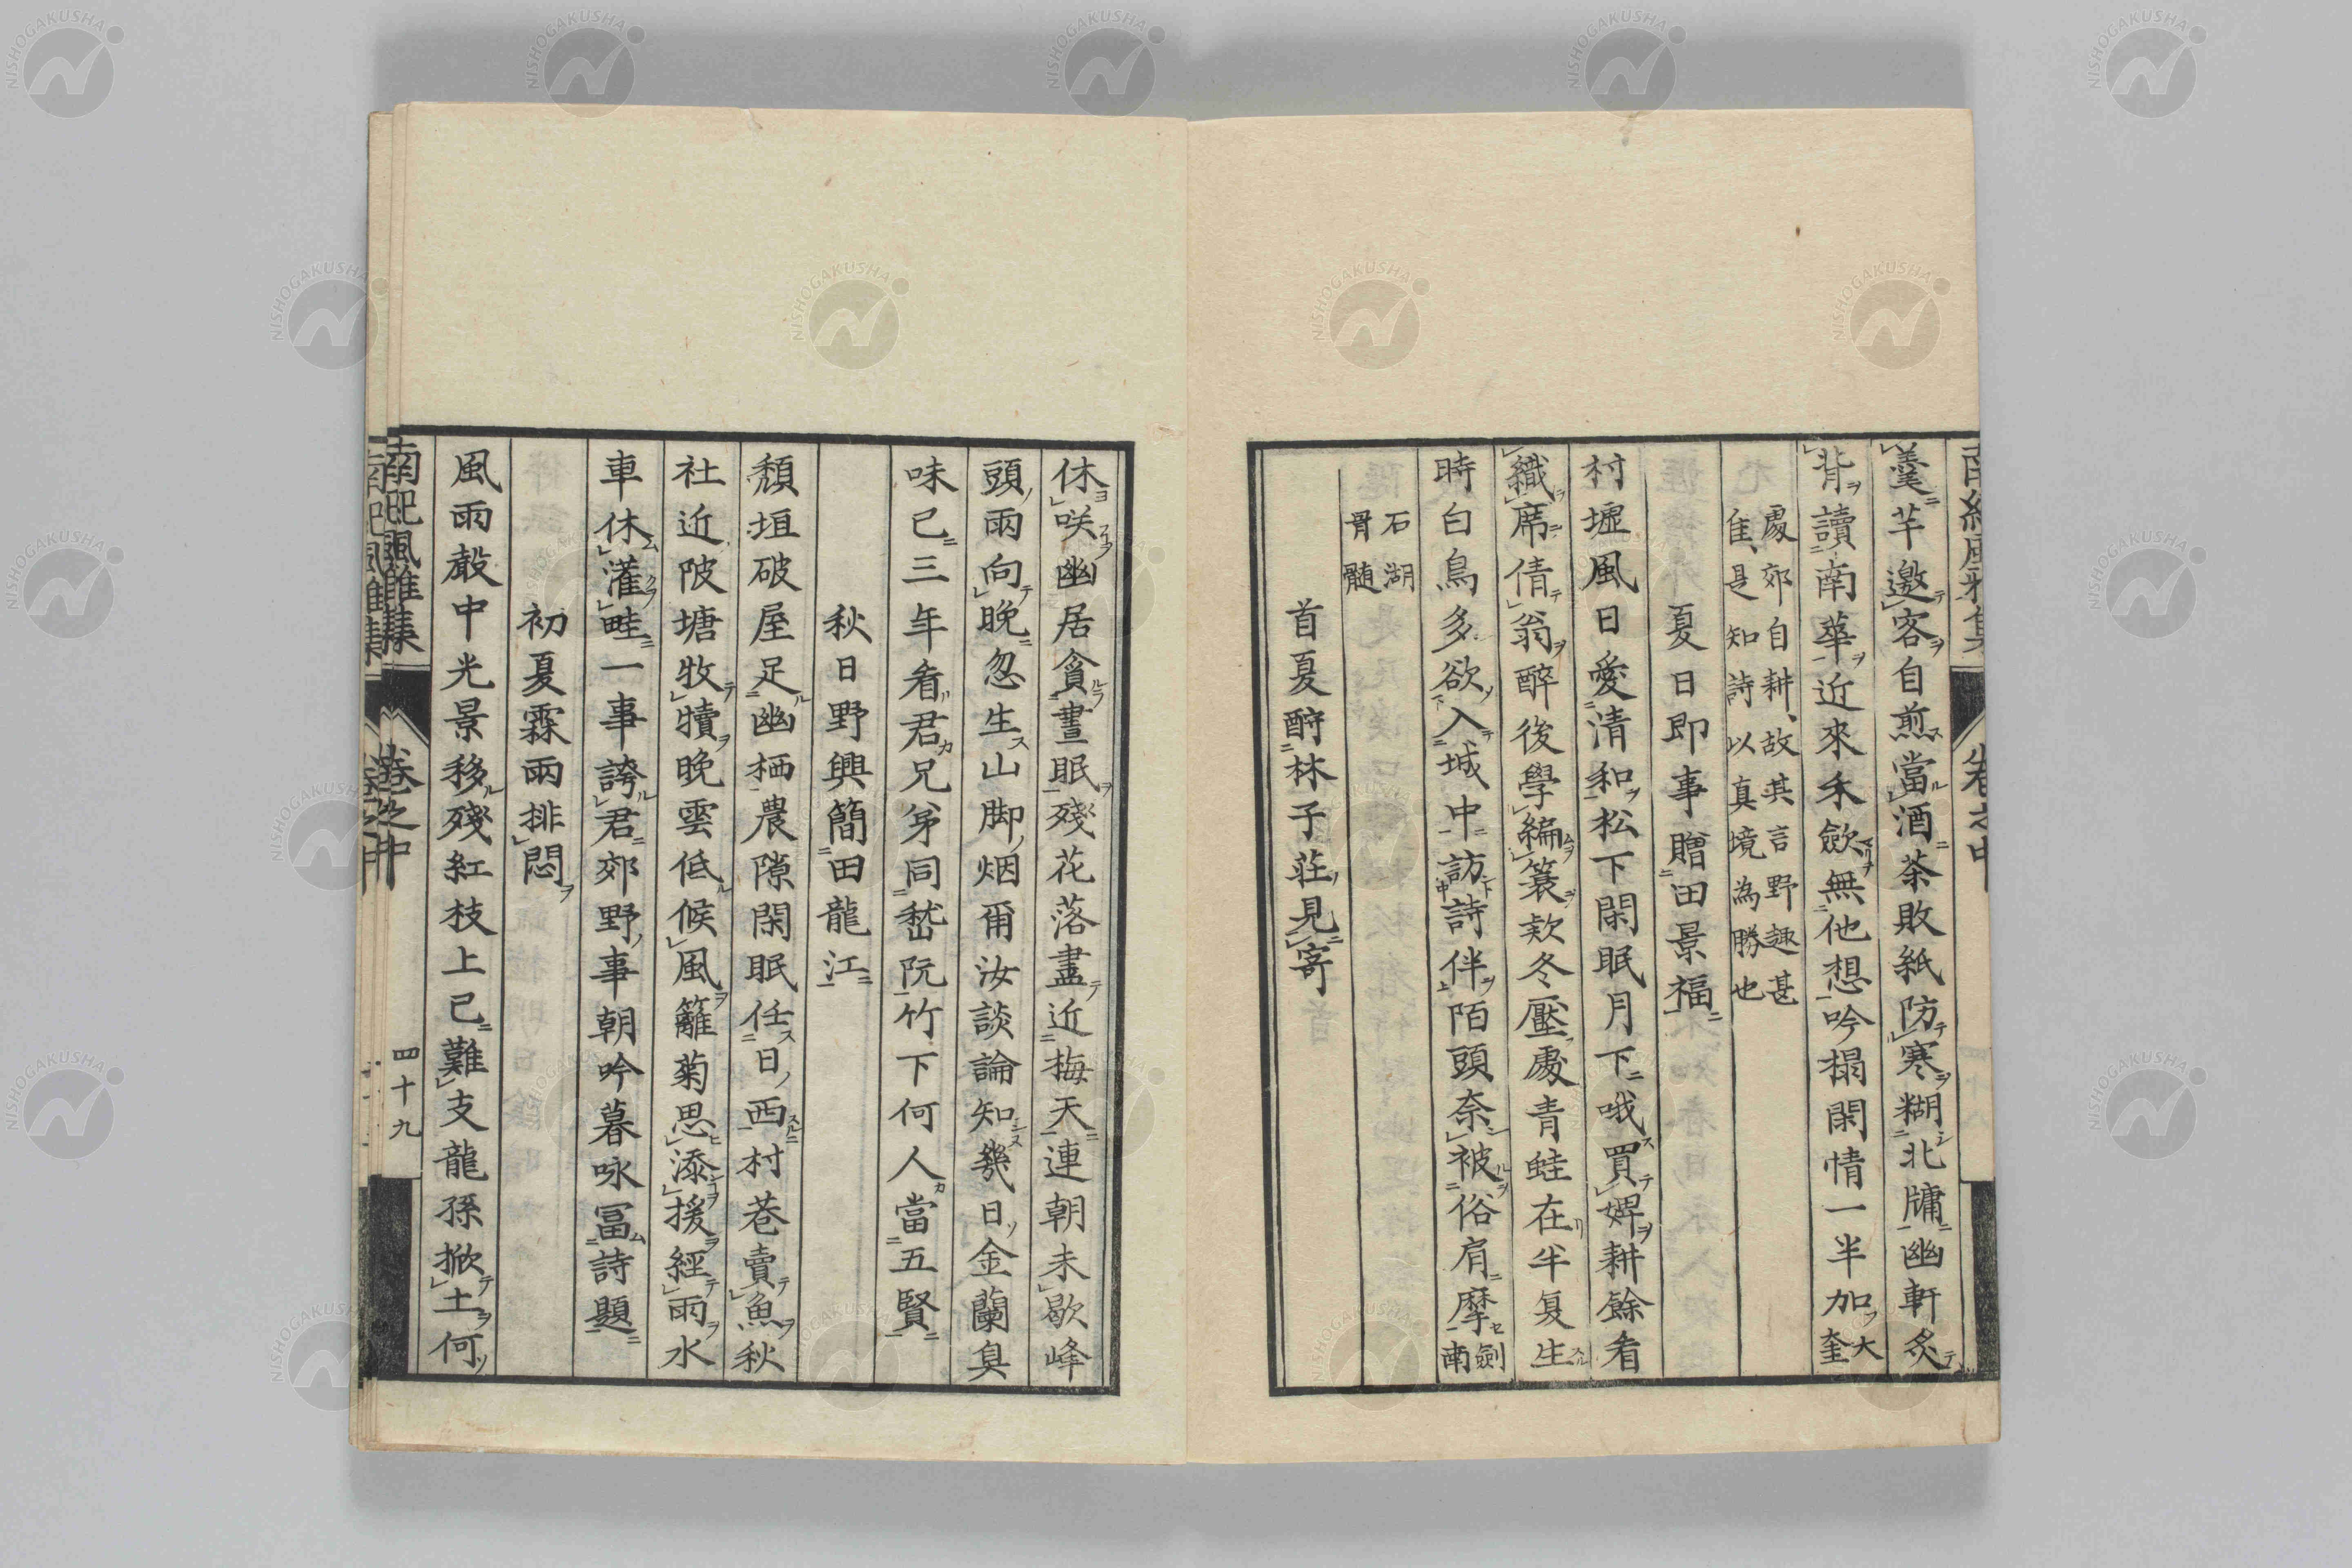 羹芋邀客自煎當酒茶敗紙防寒糊北牗幽軒炙
背讀南華近來禾歛無他想吟榻閑情一半加大奎
處郊自耕、故其言野趣甚
隹、是知詩以真境為勝也
夏日即事贈田景福
村墟風日愛清和松下閑眠月下哦買婢耕餘看
織席倩翁醉後學編簑欵冬壓處青蛙在半夏生
時白鳥多欲入城中訪詩伴陌頭奈被俗肩摩劍南
石湖
骨髄
首夏酧林子莊見寄
休咲幽居貪晝眠殘花落盡近梅天連朝未歇峰
頭雨向晚忽生山脚烟爾汝談論知幾日金蘭臭
味已三年看君兄弟同嵇阮竹下何人當五賢
秋日野興簡田龍江
頽垣破屋足幽栖農隙閑眠任日西村巷賣魚秋
社近陂塘牧犢晩雲低候風籬菊思添援經雨水
車休灌畦一事誇君郊野事朝吟暮咏冨詩題
初夏霖雨排悶
風雨聲中光景移殘紅枝上已難支龍孫掀土何
南紀風雅集 卷之中 四十九
NISHOGAKUSHA